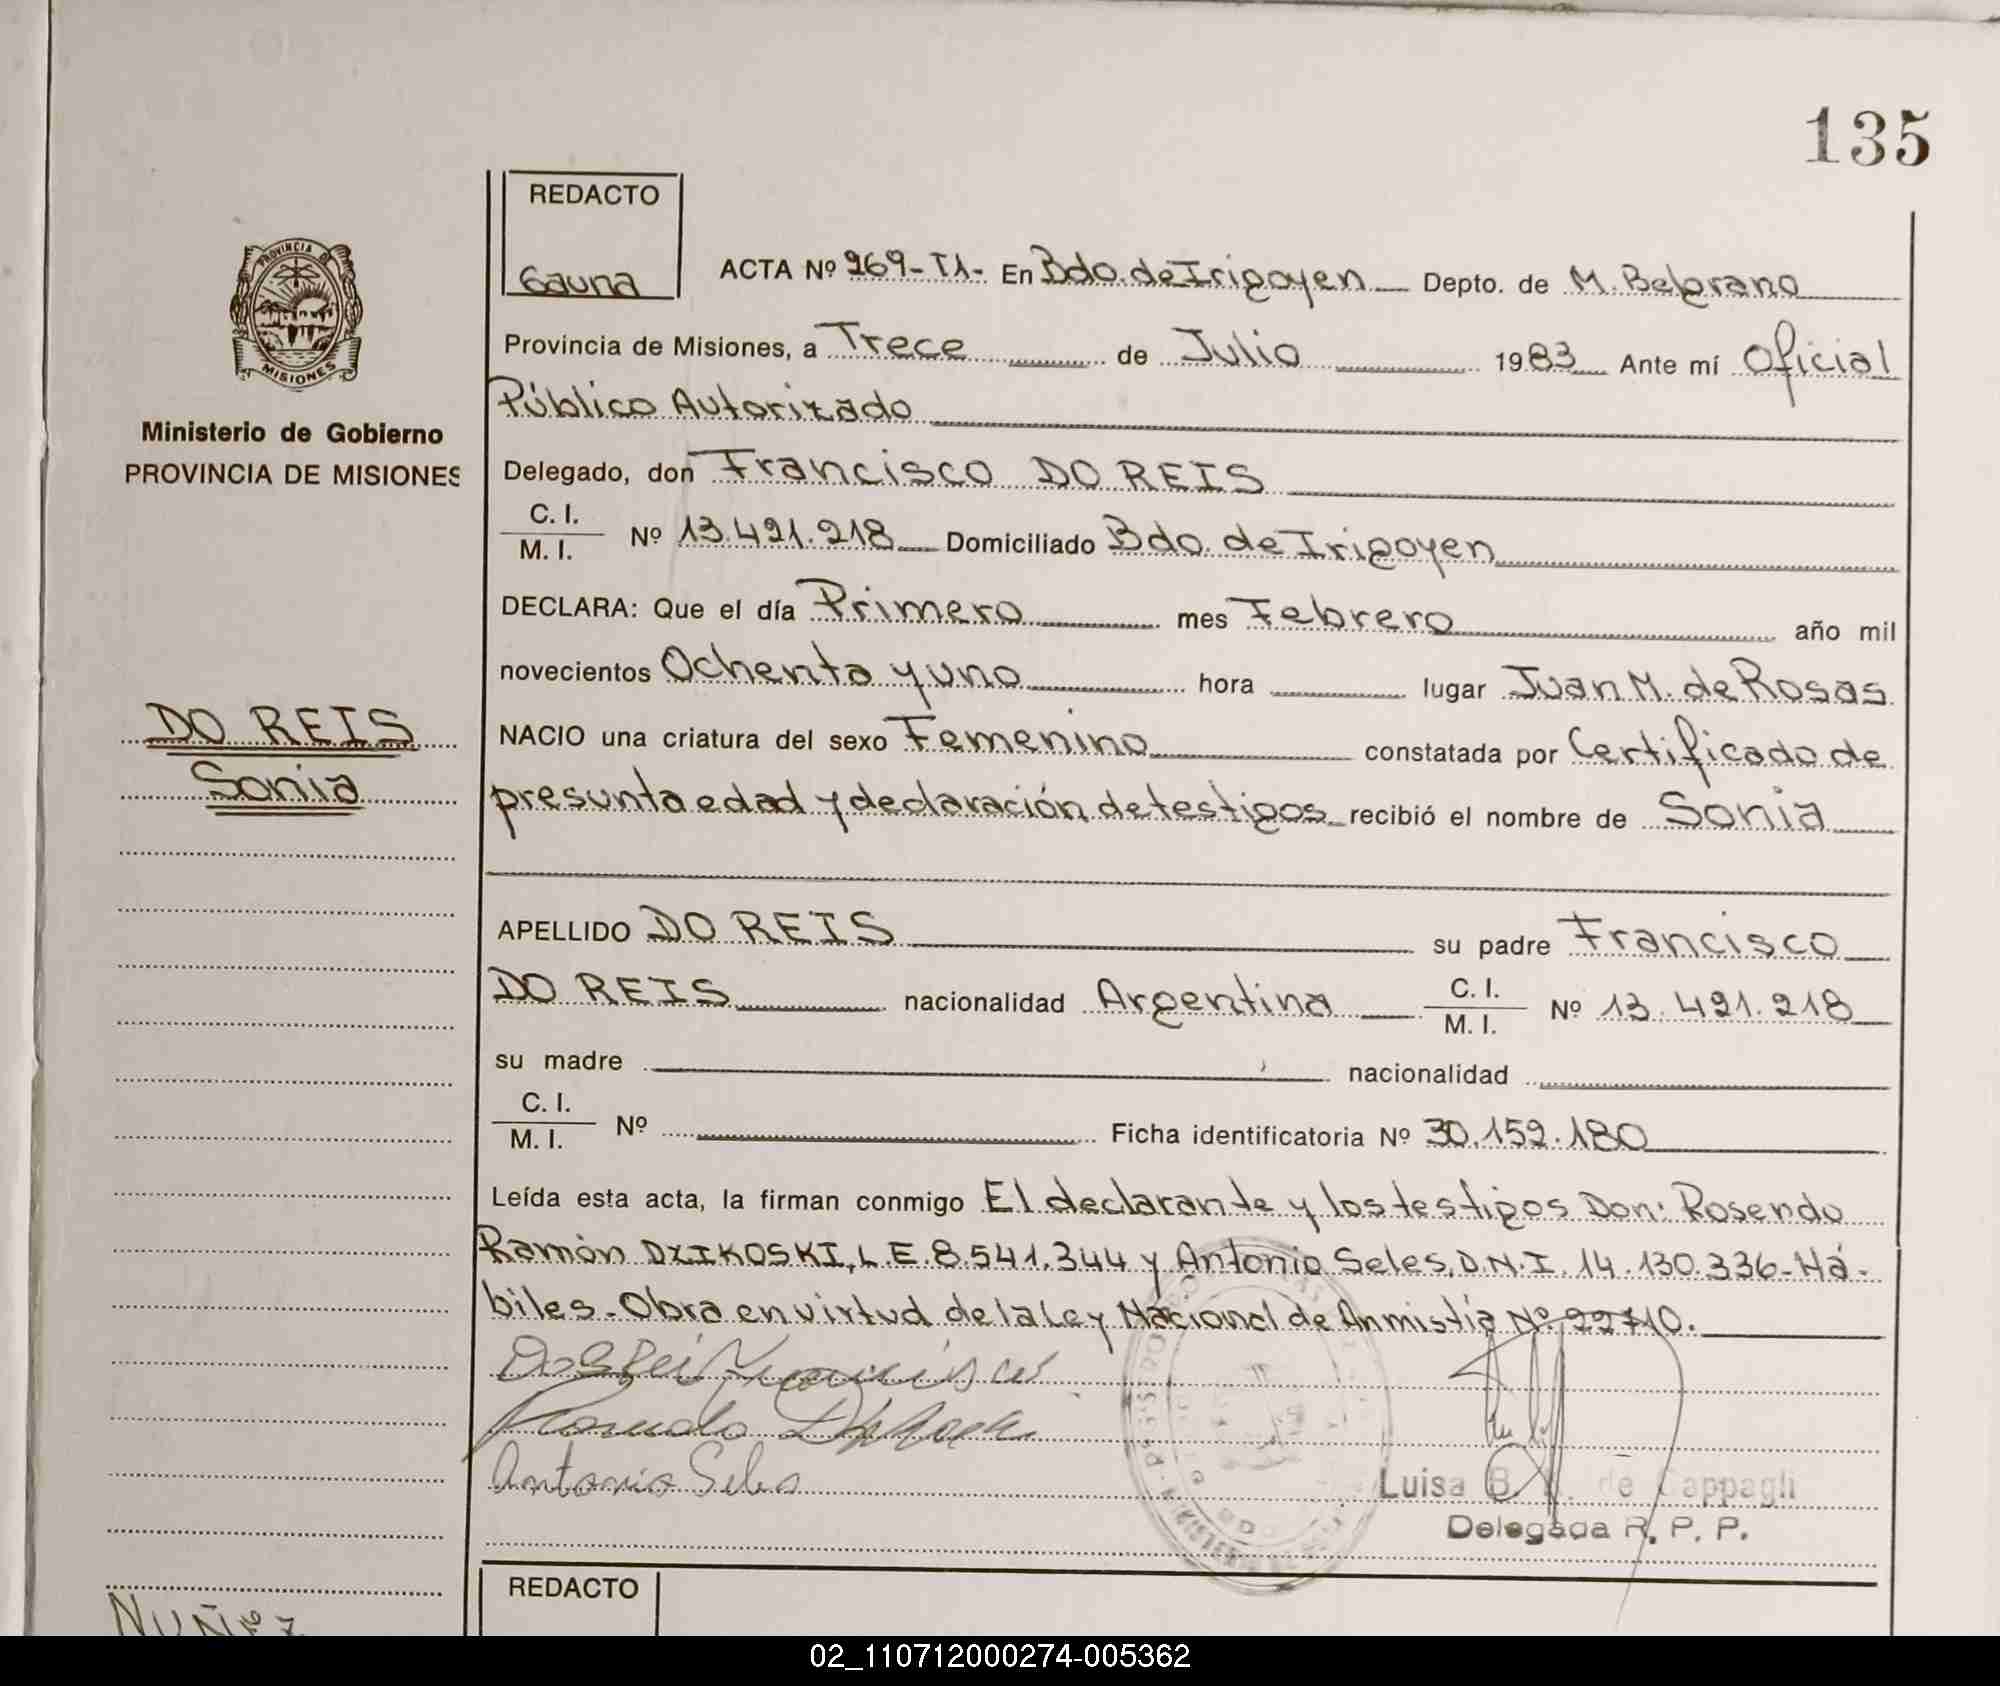 135
REDACTO
Gauna
ACTA Nº 269-T1- En Bdo. de Irigoyen Depto. de M. Belgrano
PROVINCIA DE
MISIONES
Provincia de Misiones, a Trece de Julio 1983 Ante mí Oficial
Público Autorizado
Ministerio de Gobierno
PROVINCIA DE MISIONES
Delegado, don Francisco DO REIS
C. I.
M. I. Nº 13.421.218 Domiciliado Bdo. de Irigoyen
DECLARA: Que el día Primero mes Febrero año mil
novecientos Ochenta y uno hora lugar Juan M. de Rosas
DO REIS
Sonia
NACIO una criatura del sexo Femenino constatada por Certificado de
presunta edad y declaración de testigos recibió el nombre de Sonia
APELLIDO DO REIS su padre Francisco
DO REIS nacionalidad Argentina C. I.
M. I. Nº 13.421.218
su madre nacionalidad
C. I.
M. I. Nº Ficha identificatoria Nº 30.152.180
Leída esta acta, la firman conmigo El declarante y los testigos Don: Rosendo
Ramón DZIKOSKI, L.E. 8.541.344 y Antonio Seles, D.N.I. 14.130.336-Há-
biles-Obra en virtud de la Ley Nacional de Anmistía Nº 22710.
Antonio Seles
Luisa B. de Cappagli
Delegada R. P. P.
REDACTO
NUÑEZ
02_110712000274-005362